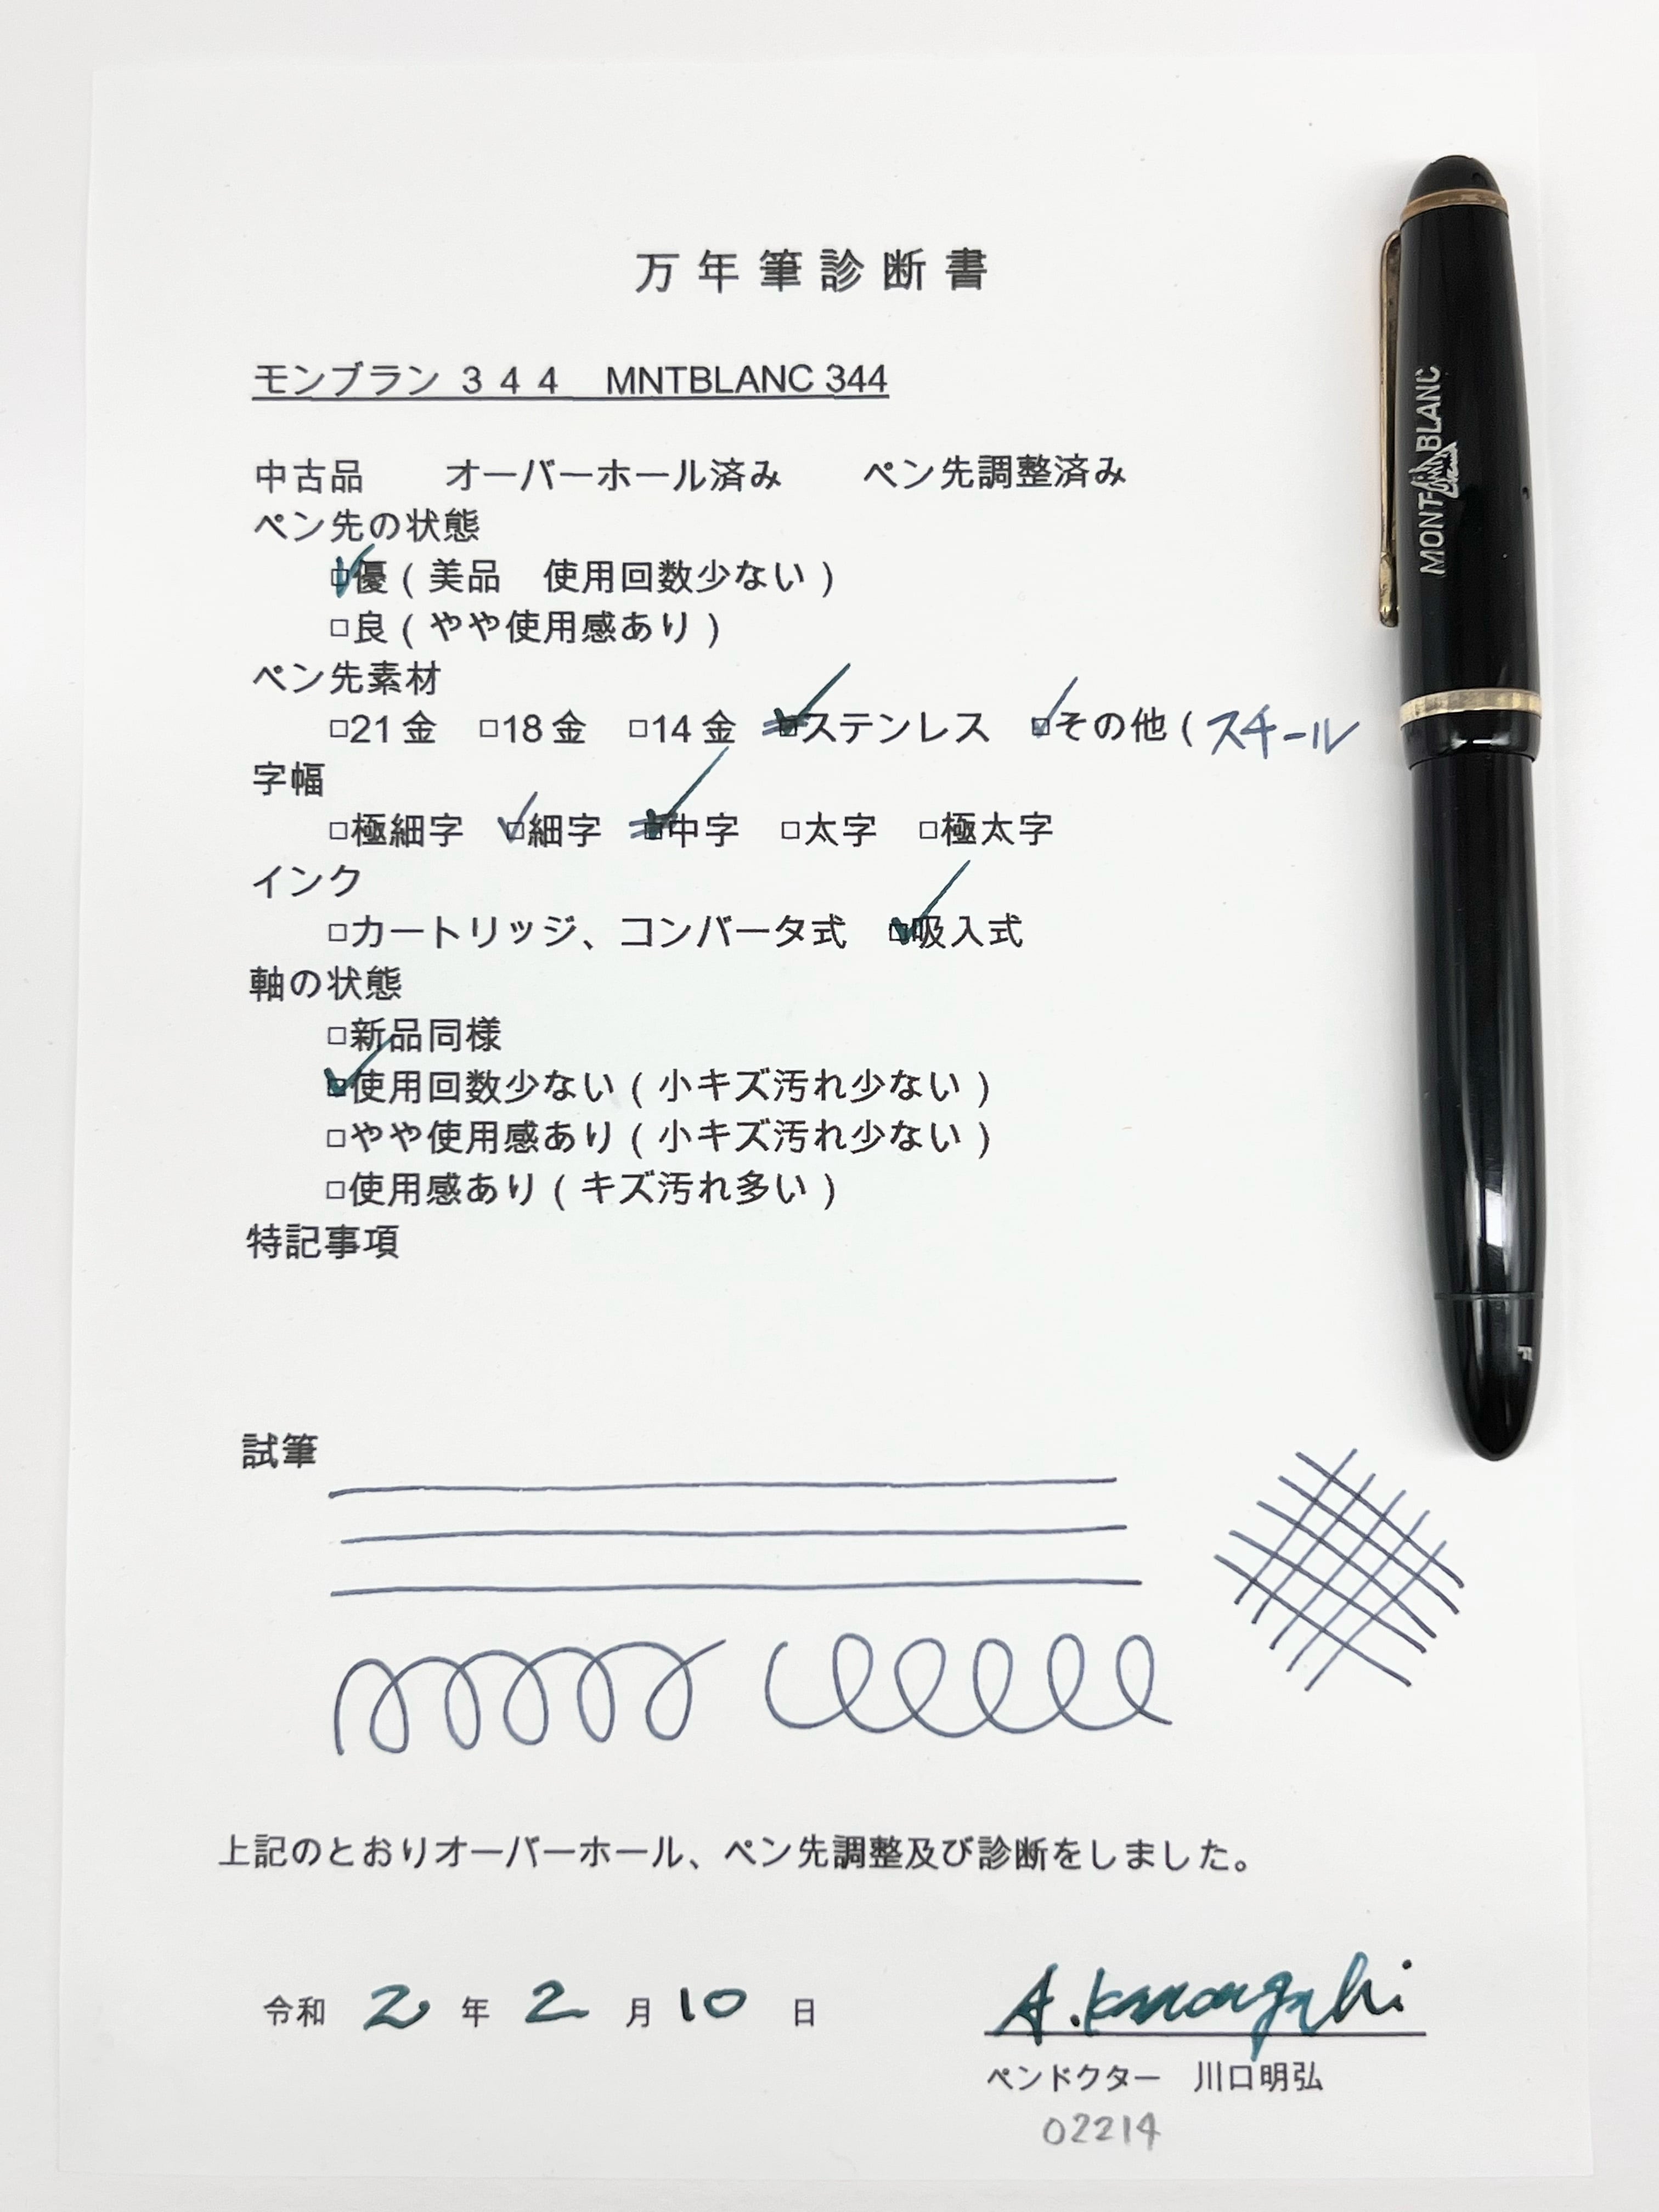 万年筆診断書
モンブラン 344 MNTBLANC 344
中古品 オーバーホール済み ペン先調整済み
ペン先の状態
☑優(美品 使用回数少ない)
□良(やや使用感あり)
ペン先素材
□21金 □18金 □14金 ☑ステンレス ☑その他(スチール
字幅
□極細字 ☑細字 ☑中字 □太字 □極太字
インク
□カートリッジ、コンバータ式 ☑吸入式
軸の状態
□新品同様
☑使用回数少ない(小キズ汚れ少ない)
□やや使用感あり(小キズ汚れ少ない)
□使用感あり(キズ汚れ多い)
特記事項
試筆
上記のとおりオーバーホール、ペン先調整及び診断をしました。
令和 2 年 2 月 10 日
A.Kawaguchi
ペンドクター 川口明弘
02214
MONTBLANC